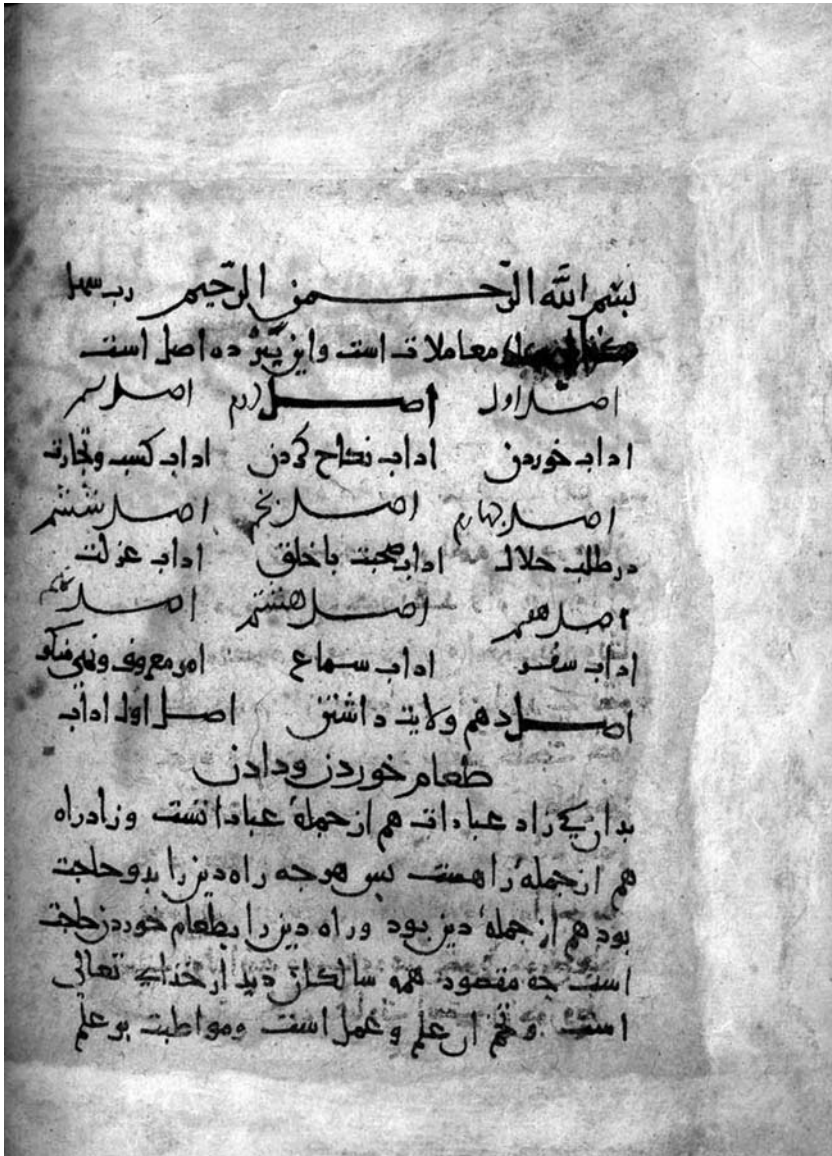 بسم الله الرحمن الرحيم رب سهل
معاملات است واین نیز ده اصل است
اصل اول اصل دوم اصل سیم
اداب خوردن اداب نکاح کردن اداب کسب وتجارت
اصل چهارم اصل پنجم اصل ششم
در طلب حلال اداب صحبت با خلق اداب عزلت
اصل هفتم اصل هشتم اصل نهم
اداب سفر اداب سماع امر معروف ونهی منکر
اصل دهم ولایت داشتن اصل اول اداب
طعام خوردن ودادن
بدان کی زاد عبادات هم از جملهٔ عباداتست وزاد راه
هم از جملهٔ راهست بس هرجه راه دین را بدو حاجت
بود هم از جملهٔ دین بود وراه دین را بطعام خوردن حاجت
است جه مقصود همه سالکان دیدار خدای تعالی
است وتخم ان علم وعمل است ومواظبت بر علم